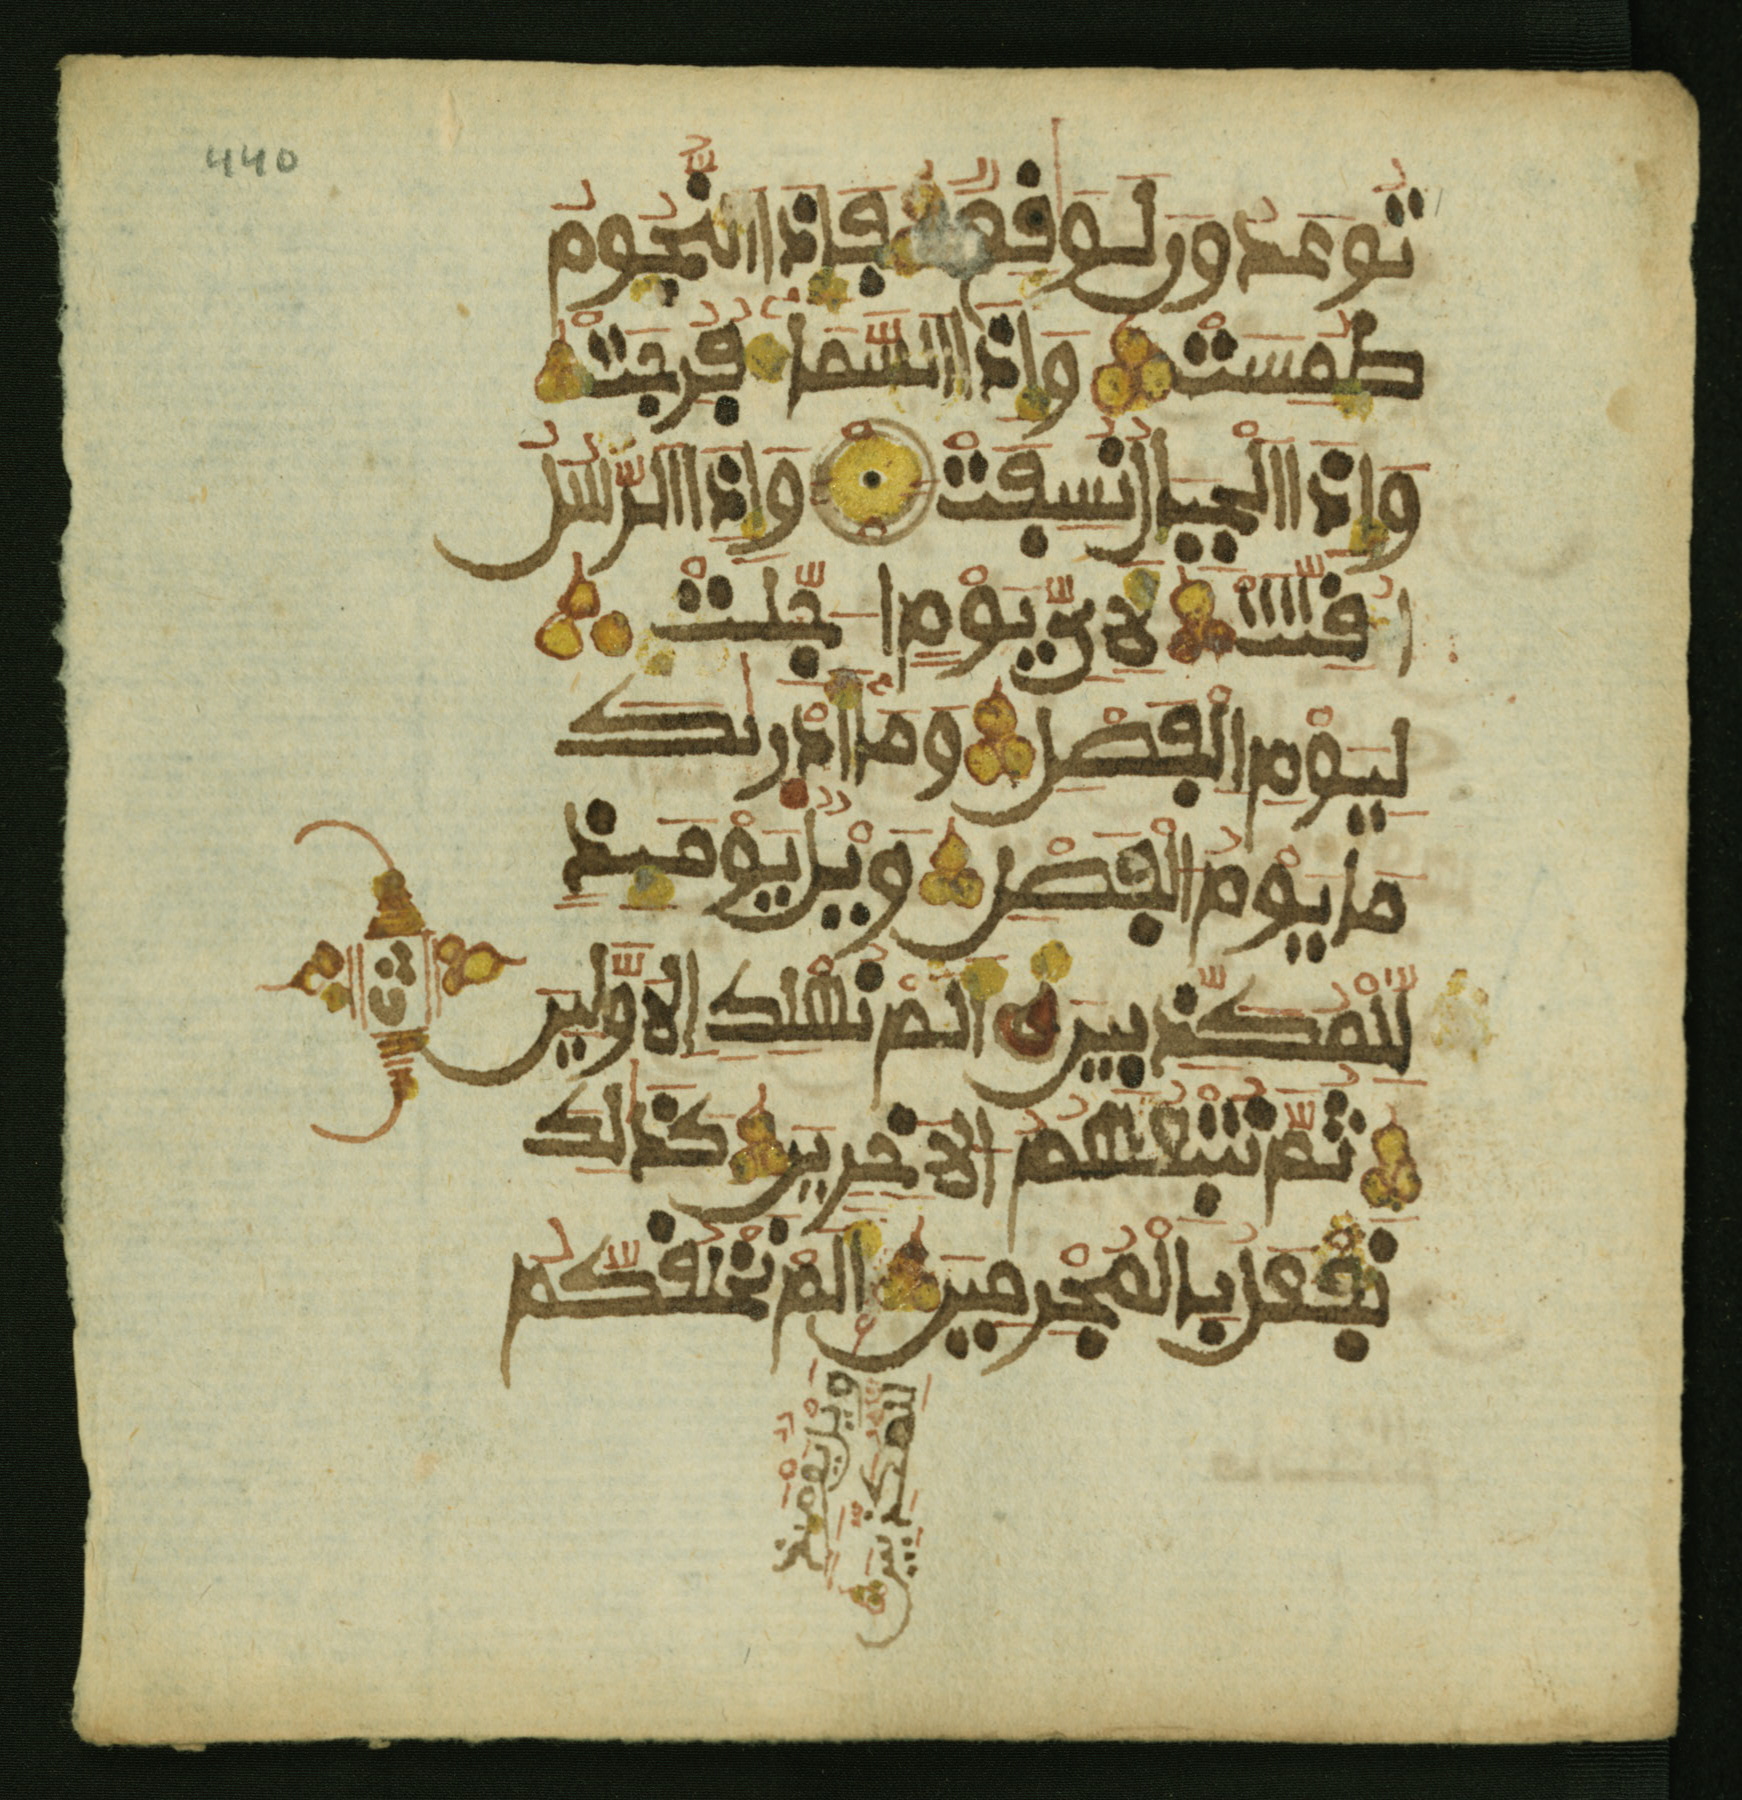 440
توعدون لوقع فإذا النجوم
طمست وإذا السماء فرجت
وإذا الجبال نسفت وإذا الرسل
أقتت لأي يوم أجلت
ليوم الفصل وما أدريك
ما يوم الفصل ويل يومئذ
للمكذبين ألم نهلك الأولين
ثم نتبعهم الآخرين كذلك
نفعل بالمجرمين ألم نخلقكم
ويل يومئذ
للمكذبين